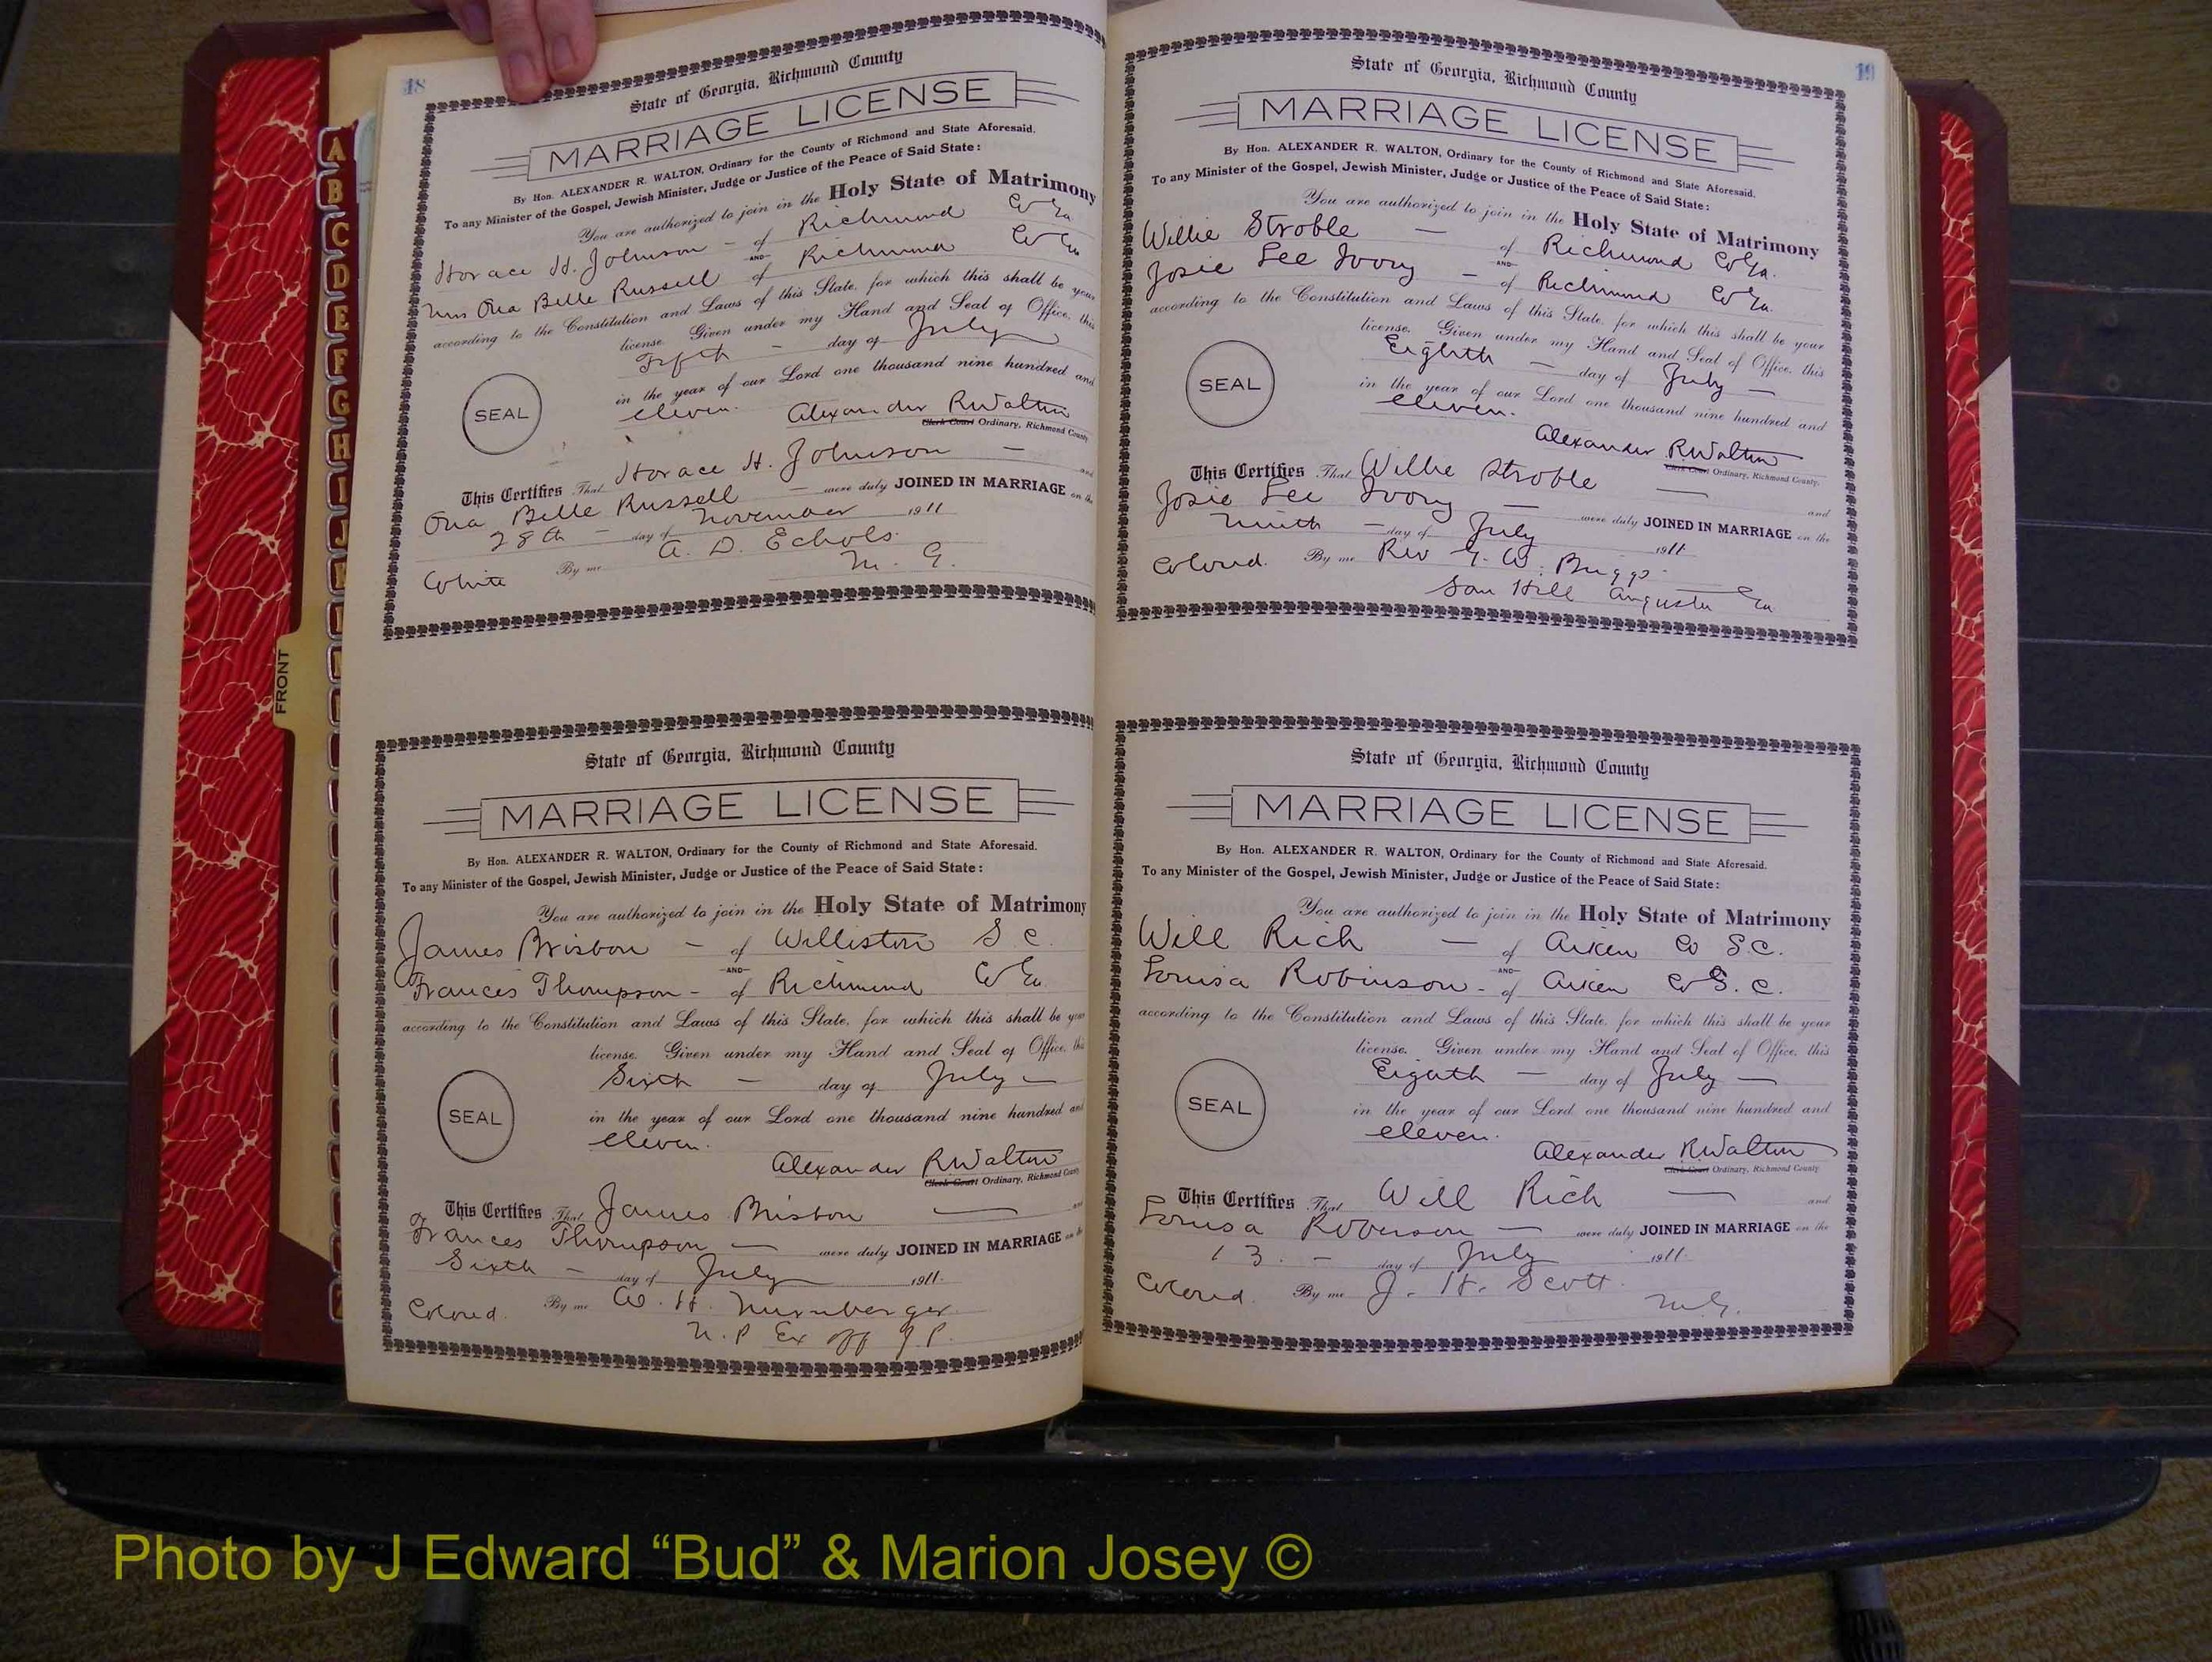 18
State of Georgia, Richmond County
MARRIAGE LICENSE
By Hon. ALEXANDER R. WALTON, Ordinary for the County of Richmond and State Aforesaid.
To any Minister of the Gospel, Jewish Minister, Judge or Justice of the Peace of Said State:
You are authorized to join in the Holy State of Matrimony
Horace H. Johnson - of Richmond Co Ga.
AND
Mrs Ora Belle Russell of Richmond Co Ga
according to the Constitution and Laws of this State, for which this shall be your
license. Given under my Hand and Seal of Office, this
Fifth - day of July
in the year of our Lord one thousand nine hundred and
eleven.
SEAL
Alexander R Walton
Clerk Court Ordinary, Richmond County
This Certifies That Horace H. Johnson - and
Ora Belle Russell - were duly JOINED IN MARRIAGE on the
28th - day of November 1911
White By me A. D. Echols.
M. G.
State of Georgia, Richmond County
MARRIAGE LICENSE
By Hon. ALEXANDER R. WALTON, Ordinary for the County of Richmond and State Aforesaid.
To any Minister of the Gospel, Jewish Minister, Judge or Justice of the Peace of Said State:
You are authorized to join in the Holy State of Matrimony
James Brisbon - of Williston S C.
AND
Frances Thompson - of Richmond Co Ga.
according to the Constitution and Laws of this State, for which this shall be your
license. Given under my Hand and Seal of Office, this
Sixth - day of July -
in the year of our Lord one thousand nine hundred and
eleven.
SEAL
Alexander R Walton
Clerk Court Ordinary, Richmond County
This Certifies That James Brisbon - and
Frances Thompson - were duly JOINED IN MARRIAGE on the
Sixth - day of July 1911.
Colored. By me W. H. Nurnberger
N. P Ex off J P.
19
State of Georgia, Richmond County
MARRIAGE LICENSE
By Hon. ALEXANDER R. WALTON, Ordinary for the County of Richmond and State Aforesaid.
To any Minister of the Gospel, Jewish Minister, Judge or Justice of the Peace of Said State:
You are authorized to join in the Holy State of Matrimony
Willie Stroble - of Richmond Co Ga.
AND
Josie Lee Ivory - of Richmond Co Ga.
according to the Constitution and Laws of this State, for which this shall be your
license. Given under my Hand and Seal of Office, this
Eighth - day of July -
in the year of our Lord one thousand nine hundred and
eleven.
SEAL
Alexander R Walton
Clerk Court Ordinary, Richmond County.
This Certifies That Willie Stroble - and
Josie Lee Ivory - were duly JOINED IN MARRIAGE on the
Ninth - day of July 1911.
Colored. By me Rev G. W. Briggs
San Hill Augusta Ga.
State of Georgia, Richmond County
MARRIAGE LICENSE
By Hon. ALEXANDER R. WALTON, Ordinary for the County of Richmond and State Aforesaid.
To any Minister of the Gospel, Jewish Minister, Judge or Justice of the Peace of Said State:
You are authorized to join in the Holy State of Matrimony
Will Rich - of Aiken Co S.C.
AND
Louisa Robinson - of Aiken Co S. C.
according to the Constitution and Laws of this State, for which this shall be your
license. Given under my Hand and Seal of Office, this
Eighth - day of July -
in the year of our Lord one thousand nine hundred and
eleven.
SEAL
Alexander R Walton
Clerk Court Ordinary, Richmond County
This Certifies That Will Rich - and
Louisa Roberson - were duly JOINED IN MARRIAGE on the
13. - day of July 1911.
Colored. By me J. H. Scott.
M. G.
A
B
C
D
E
F
G
H
I
J
FRONT
Photo by J Edward “Bud” & Marion Josey ©